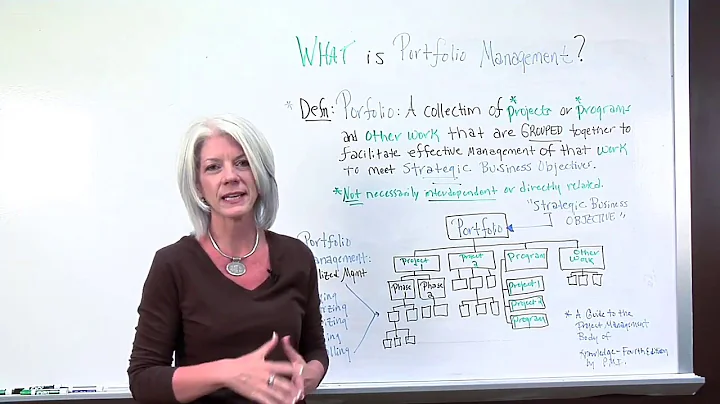 WHAT is Portfolio Management?
* Defn: Porfolio: A collection of projects or programs
and other work that are GROUPED together to
facilitate effective management of that work
to meet Strategic Business Objectives.
* Not necessarily interdependent or directly related.
"Strategic Business
OBJECTIVE"
Portfolio
Portfolio
Project
1
Project
2
Program
Other
work
Phase
1
Phase
2
Project 1
Project 2
Program
* A Guide to the
Project Management
Body of
Knowledge - Fourth Edition
by P.M.I.